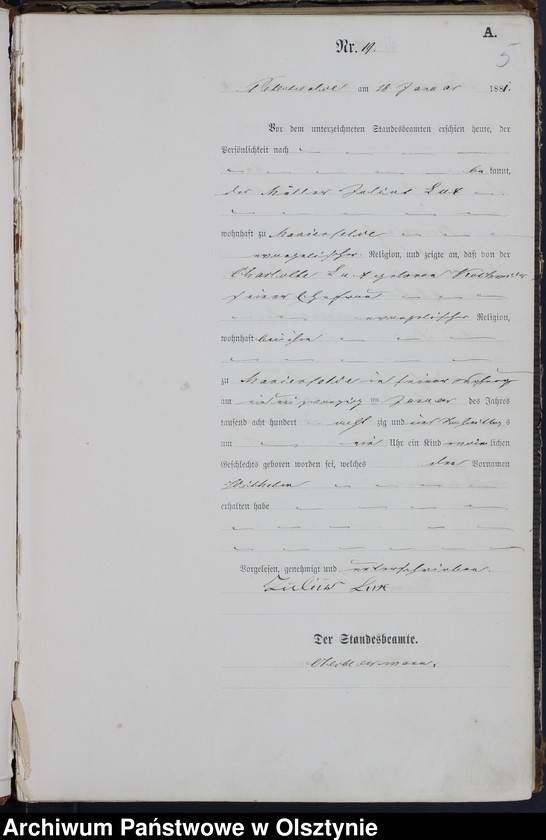 A.
5
Nr. 14.
am 28 Januar 1881.
Vor dem unterzeichneten Standesbeamten erschien heute, der
Persönlichkeit nach
be kannt,
der Müller Julius Lux
wohnhaft zu Marienfelde
evangelischer Religion, und zeigte an, daß von der
Charlotte Lux geborene
seiner Ehefrau
evangelischer Religion,
wohnhaft bei ihm
zu Marienfelde in seiner Wohnung
am ein und zwanzigsten Januar des Jahres
tausend acht hundert acht zig und eins Nachmittags
um ein Uhr ein Kind männlichen
Geschlechts geboren worden sei, welches den Vornamen
Wilhelm
erhalten habe
Vorgelesen, genehmigt und unterschrieben.
Julius Lux
Der Standesbeamte.
Archiwum Państwowe w Olsztynie